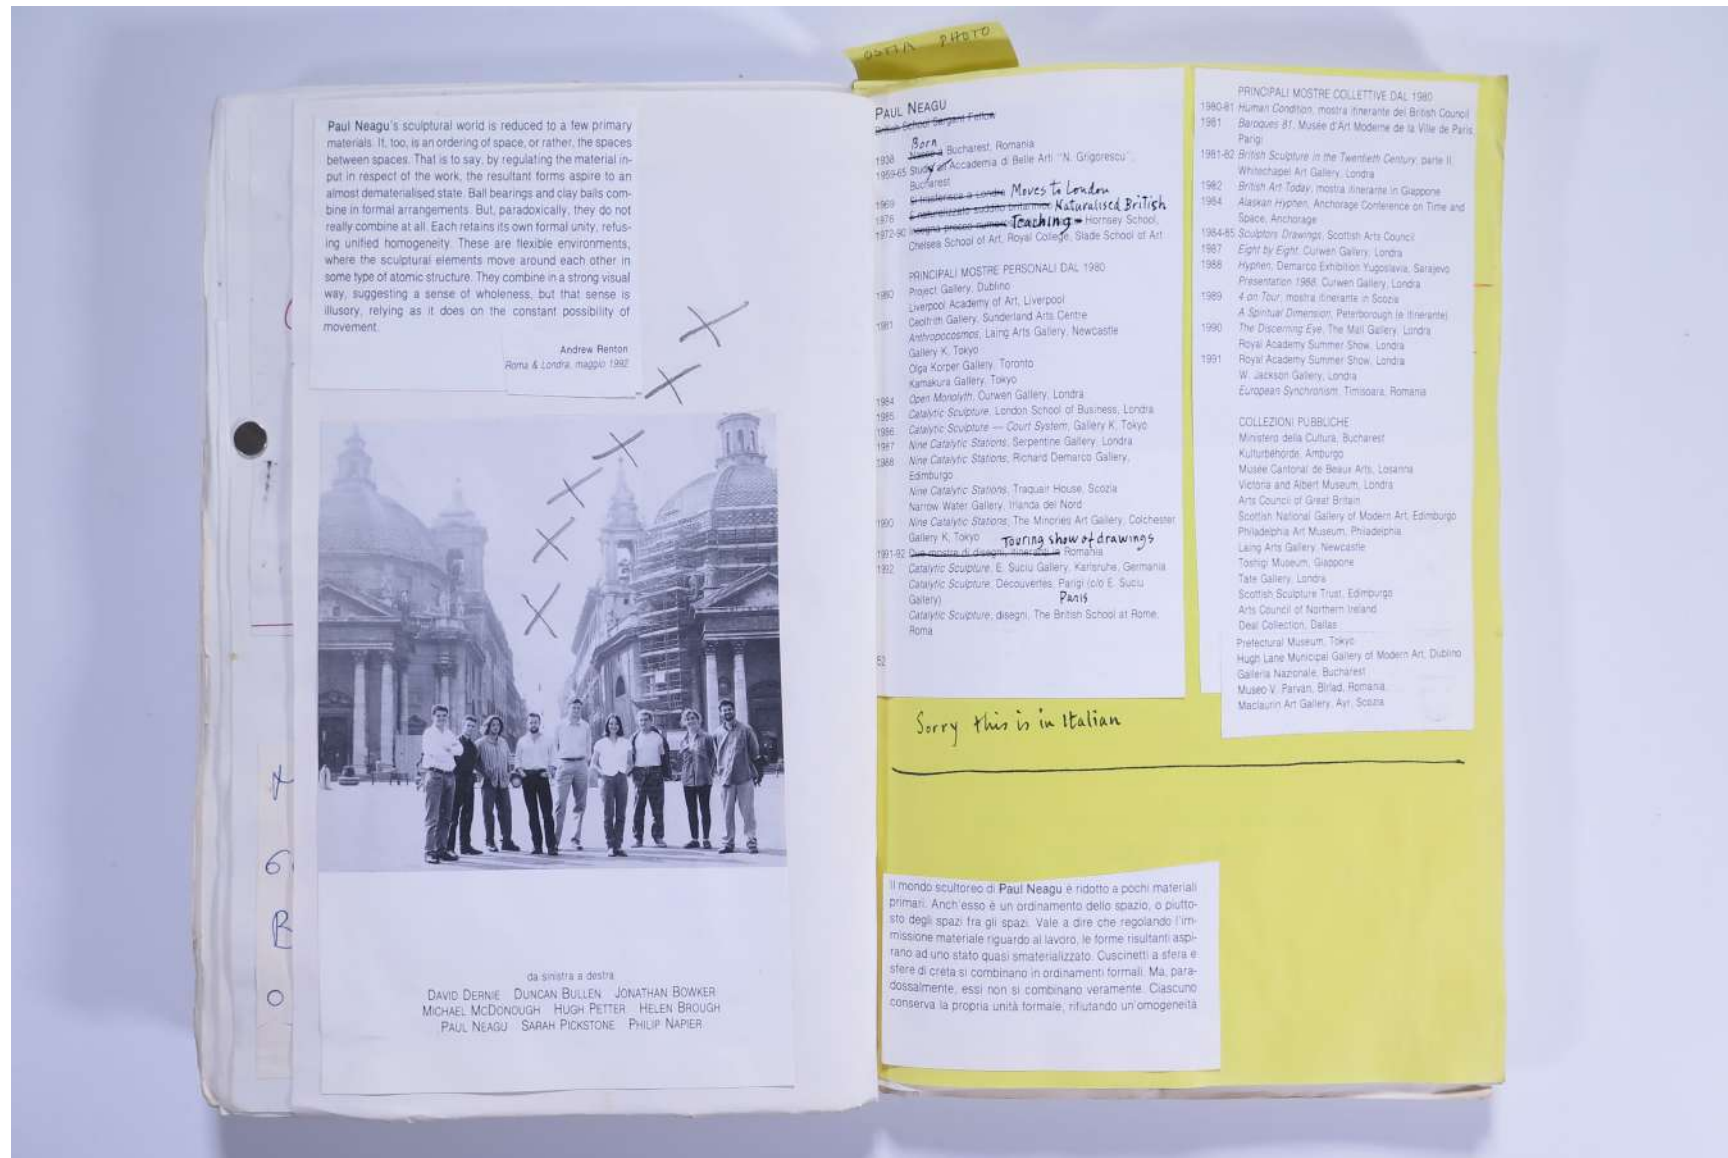 Paul Neagu's sculptural world is reduced to a few primary
materials. It, too, is an ordering of space, or rather, the spaces
between spaces. That is to say, by regulating the material in-
put in respect of the work, the resultant forms aspire to an
almost dematerialised state. Ball bearings and clay balls com-
bine in formal arrangements. But, paradoxically, they do not
really combine at all. Each retains its own formal unity, refus-
ing unified homogeneity. These are flexible environments,
where the sculptural elements move around each other in
some type of atomic structure. They combine in a strong visual
way, suggesting a sense of wholeness, but that sense is
illusory, relying as it does on the constant possibility of
movement.
Andrew Renton
Roma & Londra, maggio 1992
da sinistra a destra
DAVID DERNIE DUNCAN BULLEN JONATHAN BOWKER
MICHAEL MCDONOUGH HUGH PETTER HELEN BROUGH
PAUL NEAGU SARAH PICKSTONE PHILIP NAPIER
PHOTO
PAUL NEAGU
British School Sargant Fellow
Born
1938 Bucharest, Romania
1959-65 Study Accademia di Belle Arti "N. Grigorescu",
Bucharest
1969 si trasferisce a Londra Moves to London
1976 È naturalizzato suddito britannico Naturalised British
1972-90 Insegna presso Teaching Hornsey School,
Chelsea School of Art, Royal College, Slade School of Art
PRINCIPALI MOSTRE PERSONALI DAL 1980
1980 Project Gallery, Dublino
Liverpool Academy of Art, Liverpool
1981 Ceolfrith Gallery, Sunderland Arts Centre
Anthropocosmos, Laing Arts Gallery, Newcastle
Gallery K, Tokyo
Olga Korper Gallery, Toronto
Kamakura Gallery, Tokyo
1984 Open Monolyth, Curwen Gallery, Londra
1985 Catalytic Sculpture, London School of Business, Londra
1986 Catalytic Sculpture — Court System, Gallery K, Tokyo
1987 Nine Catalytic Stations, Serpentine Gallery, Londra
1988 Nine Catalytic Stations, Richard Demarco Gallery,
Edimburgo
Nine Catalytic Stations, Traquair House, Scozia
Narrow Water Gallery, Irlanda del Nord
1990 Nine Catalytic Stations, The Minories Art Gallery, Colchester
Gallery K, Tokyo Touring show of drawings
1991-92 Due mostre di disegni, itineranti in Romania
1992 Catalytic Sculpture, E. Suciu Gallery, Karlsruhe, Germania
Catalytic Sculpture, Découvertes, Parigi (c/o E. Suciu
Gallery) Paris
Catalytic Sculpture, disegni, The British School at Rome,
Roma
52
PRINCIPALI MOSTRE COLLETTIVE DAL 1980
1980-81 Human Condition, mostra itinerante del British Council
1981 Baroques 81, Musée d'Art Moderne de la Ville de Paris,
Parigi
1981-82 British Sculpture in the Twentieth Century, parte II,
Whitechapel Art Gallery, Londra
1982 British Art Today, mostra itinerante in Giappone
1984 Alaskan Hyphen, Anchorage Conference on Time and
Space, Anchorage
1984-85 Sculptors Drawings, Scottish Arts Council
1987 Eight by Eight, Curwen Gallery, Londra
1988 Hyphen, Demarco Exhibition Yugoslavia, Sarajevo
Presentation 1988, Curwen Gallery, Londra
1989 4 on Tour, mostra itinerante in Scozia
A Spiritual Dimension, Peterborough (e itinerante)
1990 The Discerning Eye, The Mall Gallery, Londra
Royal Academy Summer Show, Londra
1991 Royal Academy Summer Show, Londra
W. Jackson Gallery, Londra
European Synchronism, Timisoara, Romania
COLLEZIONI PUBBLICHE
Ministero della Cultura, Bucharest
Kulturbehörde, Amburgo
Musée Cantonal de Beaux Arts, Losanna
Victoria and Albert Museum, Londra
Arts Council of Great Britain
Scottish National Gallery of Modern Art, Edimburgo
Philadelphia Art Museum, Philadelphia
Laing Arts Gallery, Newcastle
Toshigi Museum, Giappone
Tate Gallery, Londra
Scottish Sculpture Trust, Edimburgo
Arts Council of Northern Ireland
Deal Collection, Dallas
Prefectural Museum, Tokyo
Hugh Lane Municipal Gallery of Modern Art, Dublino
Galleria Nazionale, Bucharest
Museo V. Parvan, Birlad, Romania
Maclaurin Art Gallery, Ayr, Scozia
Sorry this is in Italian
Il mondo scultoreo di Paul Neagu è ridotto a pochi materiali
primari. Anch'esso è un ordinamento dello spazio, o piutto-
sto degli spazi fra gli spazi. Vale a dire che regolando l'im-
missione materiale riguardo al lavoro, le forme risultanti aspi-
rano ad uno stato quasi smaterializzato. Cuscinetti a sfera e
sfere di creta si combinano in ordinamenti formali. Ma, para-
dossalmente, essi non si combinano veramente. Ciascuno
conserva la propria unità formale, rifiutando un'omogeneità